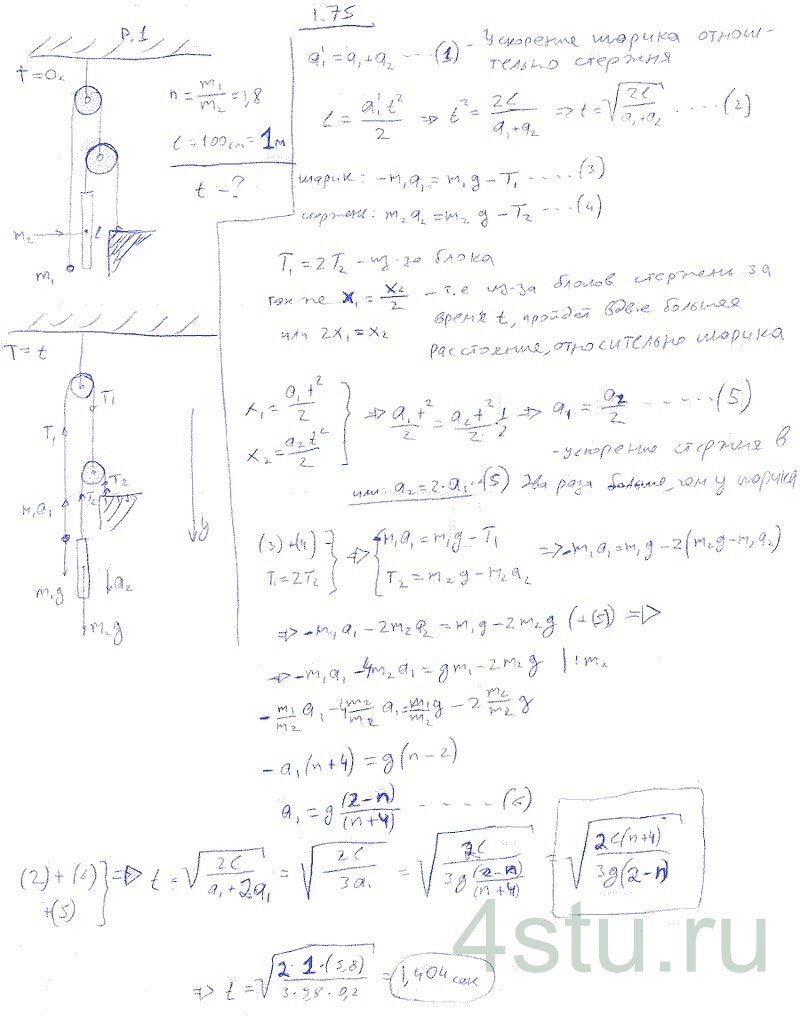 1.75
P.1
t=0с
n = m₁/m₂ = 1,8
l = 100см = 1м
t - ?
m₂
l
m₁
a₁' = a₁ + a₂ ... (1) - Ускорение шарика относи-
тельно стержня
l = a₁' t²/2 => t² = 2l/(a₁+a₂) => t = √(2l/(a₁+a₂)) ..... (2)
шарик: -m₁a₁ = m₁g - T₁ ..... (3)
стержень: m₂a₂ = m₂g - T₂ ... (4)
T₁ = 2T₂ - из-за блока
так же x₁ = x₂/2 - т.е из-за блоков стержень за
или 2x₁ = x₂ время t, пройдет вдвое большее
расстояние, относительно шарика
T = t
T₁
T₁
T₂
T₂
m₁a₁
m₁g
a₂
m₂g
y
x₁ = a₁t²/2
x₂ = a₂t²/2
=> a₁t²/2 = a₂t²/2 · 1/2 => a₁ = a₂/2 ..... (5)
- ускорение стержня в
или: a₂ = 2·a₁ ·· (5) два раза больше, чем у шарика
(3)+(4)
T₁ = 2T₂
=> -m₁a₁ = m₁g - T₁
T₂ = m₂g - m₂a₂
=> -m₁a₁ = m₁g - 2(m₂g - m₂a₂)
=> -m₁a₁ - 2m₂a₂ = m₁g - 2m₂g (+(5)) =>
=> -m₁a₁ - 4m₂a₁ = gm₁ - 2m₂g | : m₂
- m₁/m₂ a₁ - 4 m₂/m₂ a₁ = m₁/m₂ g - 2 m₂/m₂ g
-a₁(n+4) = g(n-2)
a₁ = g (2-n)/(n+4) ..... (6)
(2)+(6)
+(5)
=> t = √(2l/(a₁+2a₁)) = √(2l/3a₁) = √(2l/(3g (2-n)/(n+4))) = √(2l(n+4)/(3g(2-n)))
=> t = √(2·1·(5,8)/(3·9,8·0,2)) = 1,404 сек
4stu.ru